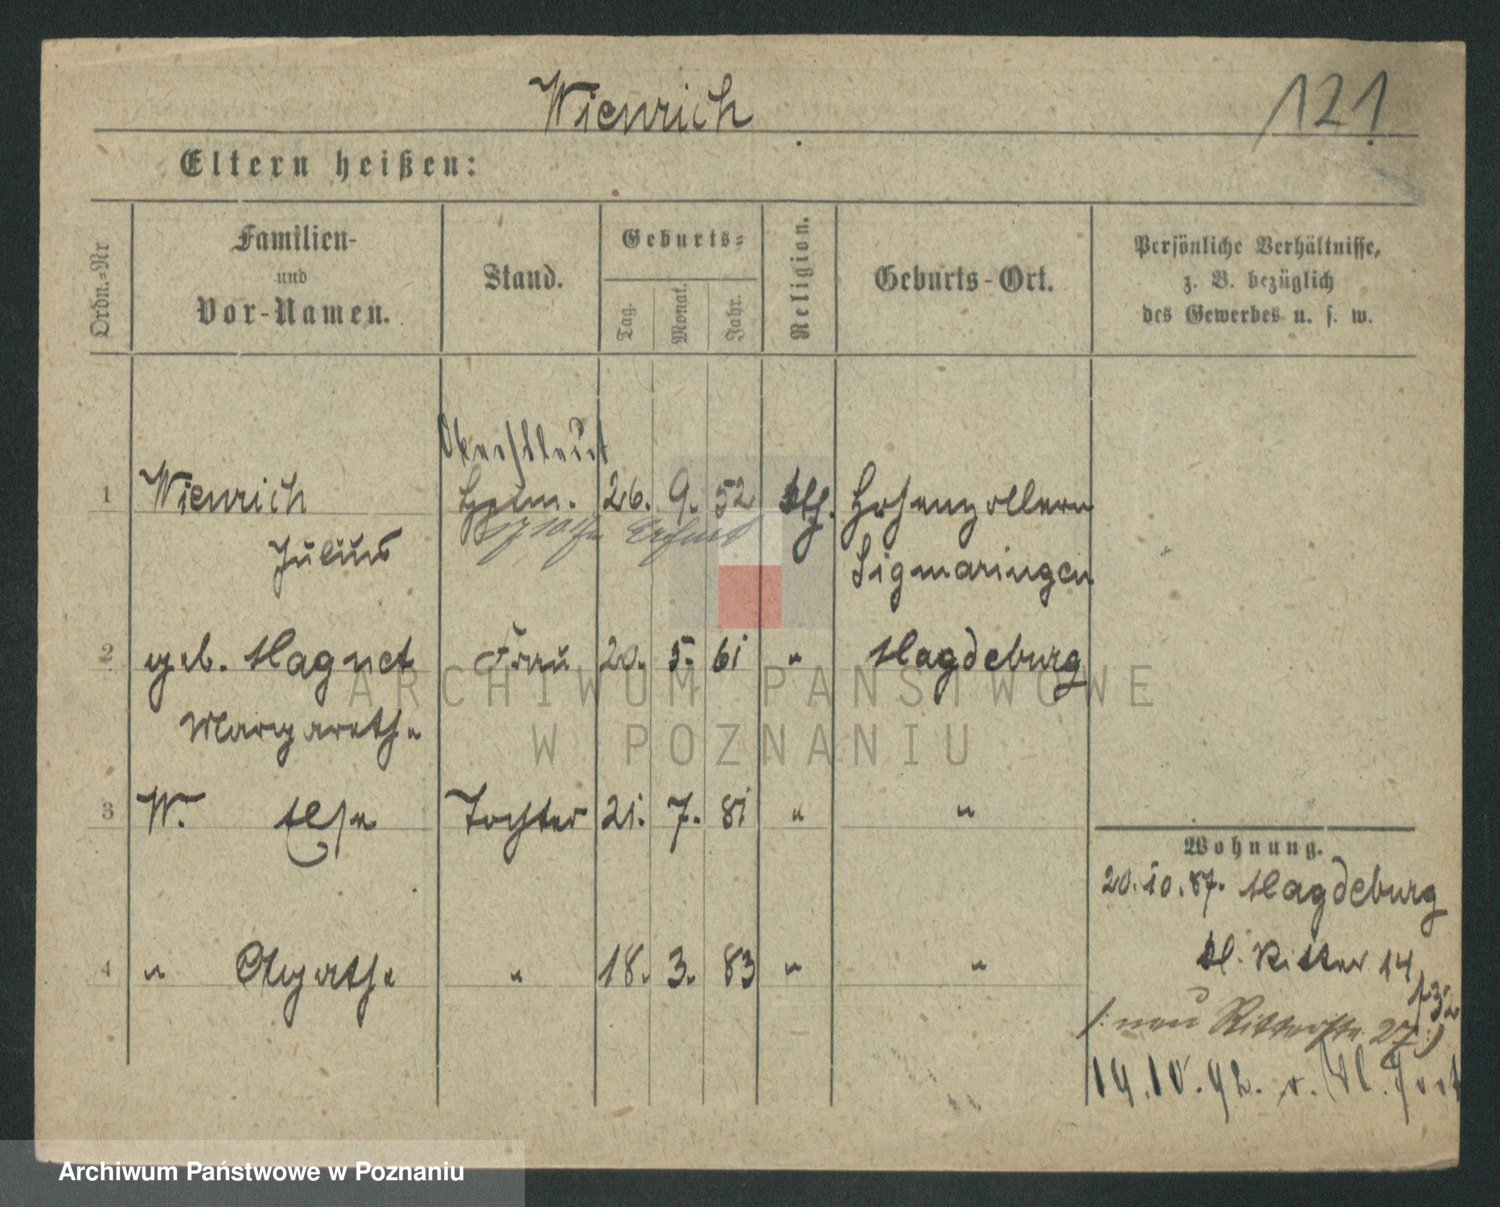 Wienrich
121
Eltern heißen:
Ordn.-Nr
Familien-
und
Vor-Namen.
Stand.
Geburts-
Tag.
Monat.
Jahr.
Religion.
Geburts-Ort.
Persönliche Verhältnisse,
z. B. bezüglich
des Gewerbes u. s. w.
Oberstleut
1 Wienrich Hptm. 26. 9. 52 Hohenzollern
Julius Sigmaringen
2 geb. Magnet Frau 20. 5. 61 " Magdeburg
Margarethe
3 W. Else Tochter 21. 7. 81 " "
Wohnung.
20.10.87. Magdeburg
4 " Agathe " 18. 3. 83 " "
Kl. Ritter 14
132
/: neu Ritterstr. 27 :/
14.10.92. v.
ARCHIWUM PAŃSTWOWE
W POZNANIU
Archiwum Państwowe w Poznaniu